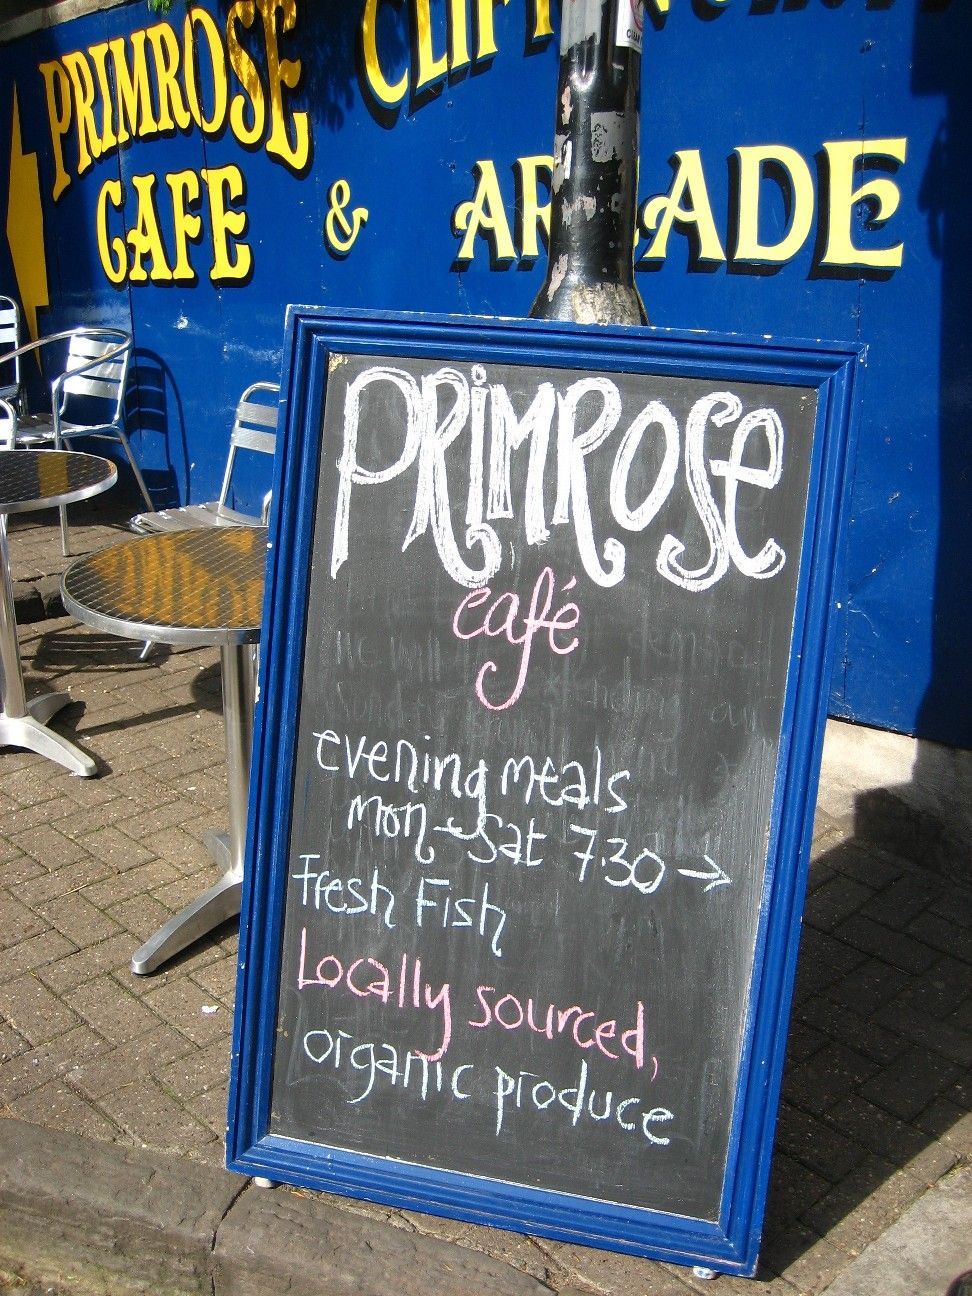 PRIMROSE
CAFE
&
ARCADE
PRIMROSE
café
evening meals
mon-Sat 7.30 →
Fresh Fish
Locally sourced,
organic produce